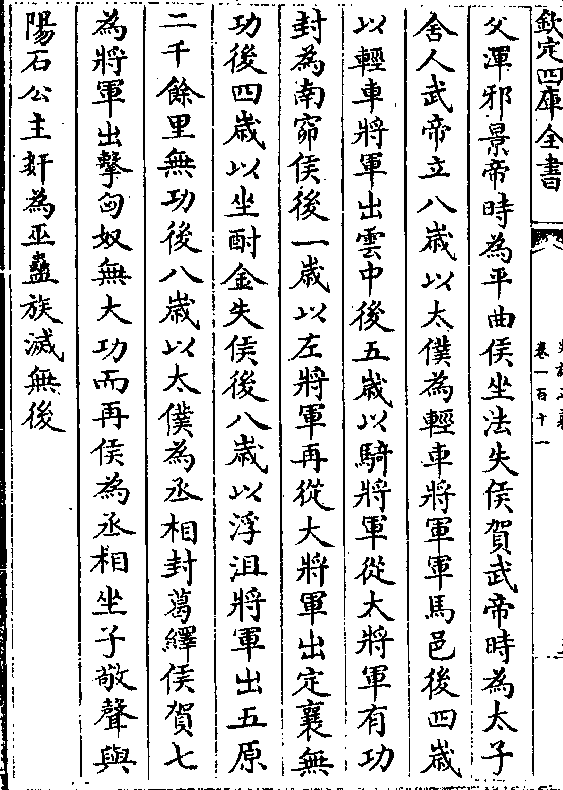 欽定四庫全書
卷一百十一
父渾邪景帝時為平曲侯坐法失侯賀武帝時為太子
舍人武帝立八歲以太僕為輕車將軍軍馬邑後四歲
以輕車將軍出雲中後五歲以騎將軍從大將軍有功
封為南窌侯後一歲以左將軍再從大將軍出定襄無
功後四歲以坐酎金失侯後八歲以浮沮將軍出五原
二千餘里無功後八歲以太僕為丞相封葛繹侯賀七
為將軍出擊匈奴無大功而再侯為丞相坐子敬聲與
陽石公主姧為巫蠱族滅無後